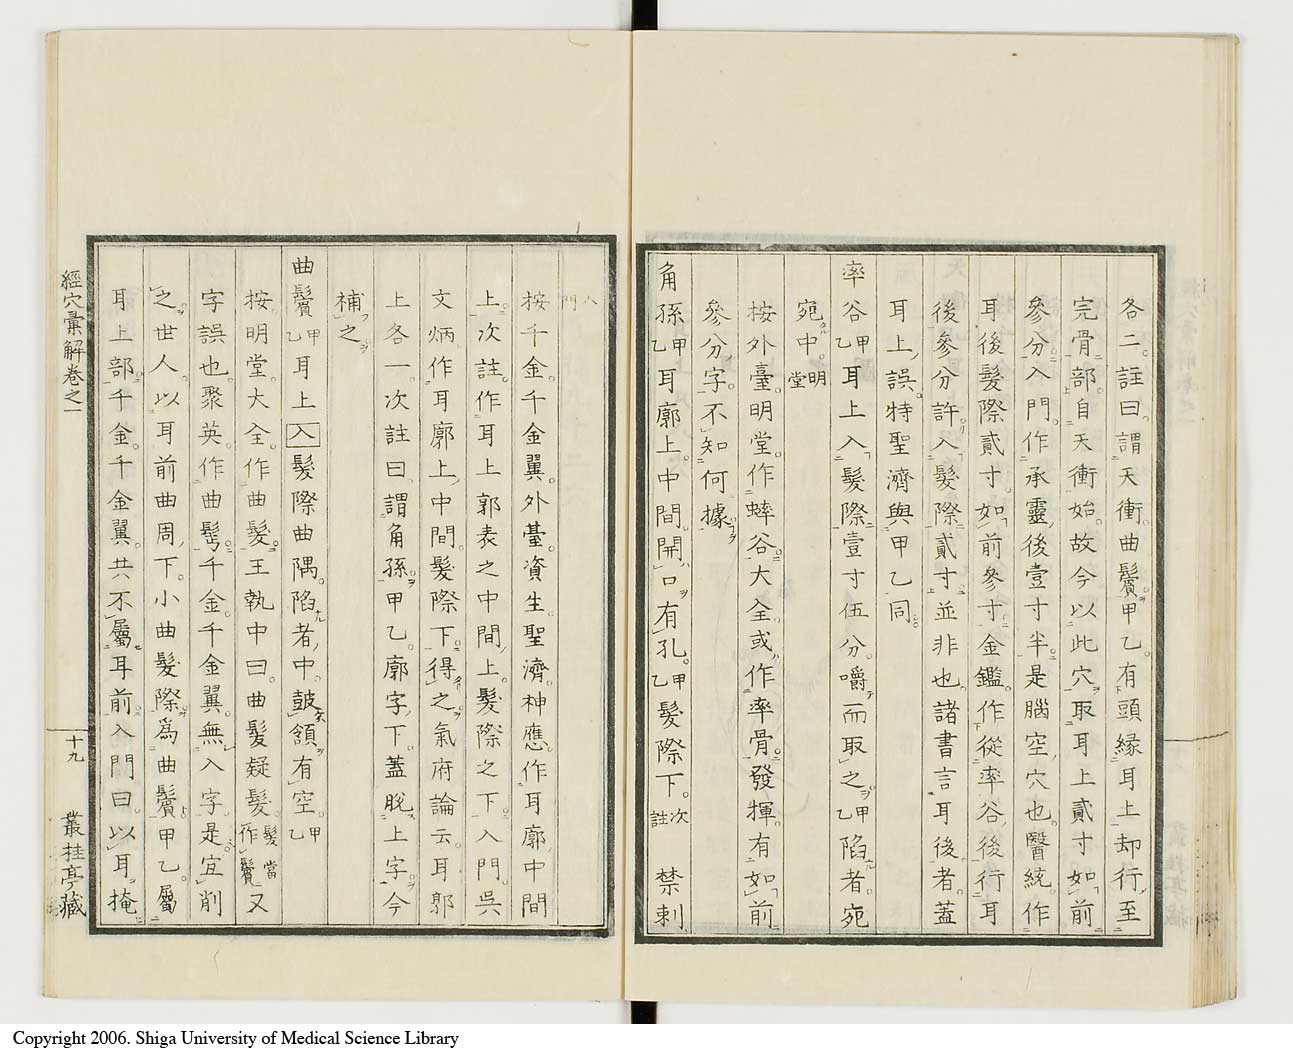 各二註曰。謂天衝。曲鬢。甲乙。有頭緣耳上却行至
完骨部。自天衝始。故今以此穴取耳上貳寸如前
參分。入門。作承靈後壹寸半。是腦空穴也。醫統。作
耳後髮際貳寸。如前參寸。金鑑。作從率谷後行耳
後參分許入髮際貳寸。並非也。諸書言耳後者。蓋
耳上誤。特聖濟與甲乙同。
率谷甲乙耳上入髮際壹寸伍分。嚼而取之甲乙陷者。宛
宛中。明堂
按外臺。明堂。作蟀谷。大全或作率骨。發揮有如前
參分字。不知何據
角孫甲乙耳廓上。中間。開口有孔。甲乙髮際下。次註 禁刺
入門
按千金。千金翼。外臺。資生。聖濟。神應。作耳廓中間
上。次註。作耳上郭表之中間上髮際之下。入門。吳
文炳。作耳廓上中間。髮際下。得之。氣府論云。耳郭
上各一。次註曰。謂角孫。甲乙。廓字下。蓋脫上字。今
補之
曲鬢甲乙耳上入髮際曲隅。陷者中。鼓頷有空。甲乙
按明堂。大全。作曲髮。王執中曰。曲髮疑髮。髮當作鬢又
字誤也。聚英。作曲髩。千金。千金翼。無入字。是宜削
之。世人。以耳前曲周下。小曲髮際。爲曲鬢甲乙。屬
耳上部。千金。千金翼。共不屬耳前。入門曰。以耳掩
經穴彙解卷之一
十九
叢桂亭藏
Copyright 2006. Shiga University of Medical Science Library